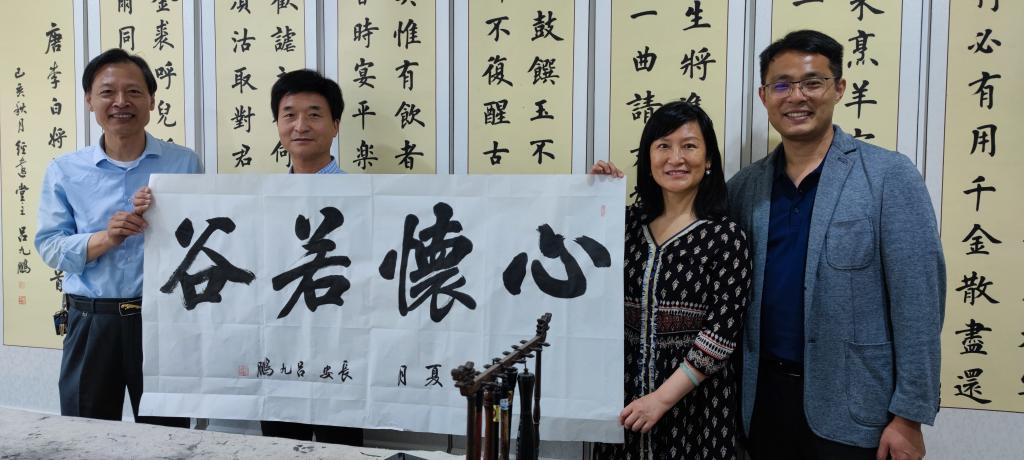 心懷若谷
夏月
長安呂九鵬
必有用千金散盡還
烹羊
生將進
一曲請
鼓饌玉不
不復醒古
惟有飲者
時宴平樂
歡謔
須沽取對君
裘呼兒
爾同
唐李白將
己亥秋月
堂主呂九鵬